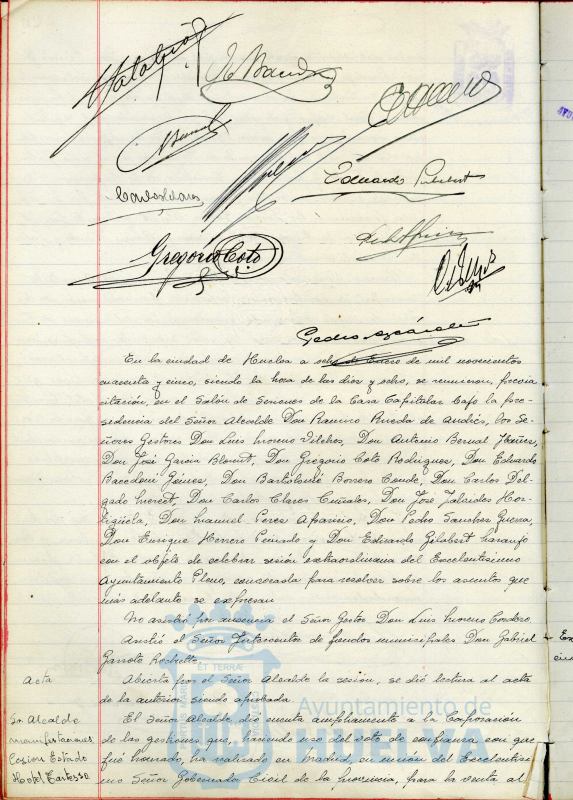 Eduardo Gilabert
Carlos Clares
Gregorio Coto
Pedro
En la ciudad de Huelva a ocho de Enero de mil novecientos
cuarenta y cinco, siendo la hora de las diez y ocho, se reunieron, previa
citación, en el Salón de Sesiones de la Casa Capitular bajo la pre-
sidencia del Señor Alcalde Don Ramiro Pineda de Andrés, los Se-
ñores Gestores Don Luis Moreno Vilches, Don Antonio Bernal Ibañez,
Don José García Blanut, Don Gregorio Coto Rodríguez, Don Eduardo
Bacedoni Gomez, Don Bartolomé Borrero Conde, Don Carlos Del-
gado Mercet, Don Carlos Clares Cumales, Don José Jalaides Hor-
tigüela, Don Manuel Perez Aparicio, Don Pedro Sanchez Guerra,
Don Enrique Herrero Peinado y Don Eduardo Gilabert Naranjo
con el objeto de celebrar sesión extraordinaria del Excelentisimo
Ayuntamiento Pleno, convocada para resolver sobre los asuntos que
mas adelante se expresan
No asistió por ausencia el Señor Gestor Don Luis Moreno Cordero.
Asistió el Señor Interventor de fondos municipales Don Gabriel
Garrote
Acta
Abierta por el Señor Alcalde la sesión, se dió lectura al acta
de la anterior siendo aprobada
Sr. Alcalde
manifestaciones
Cesión Estado
Hotel Tartesso
El Señor Alcalde, dió cuenta ampliamente a la Corporación
de las gestiones que, haciendo uso del voto de confianza con que
fué honrado, ha realizado en Madrid, en unión del Excelentisi-
mo Señor Gobernador Civil de la provincia, para la venta al
ET TERRAE
Ayuntamiento de
HUELVA